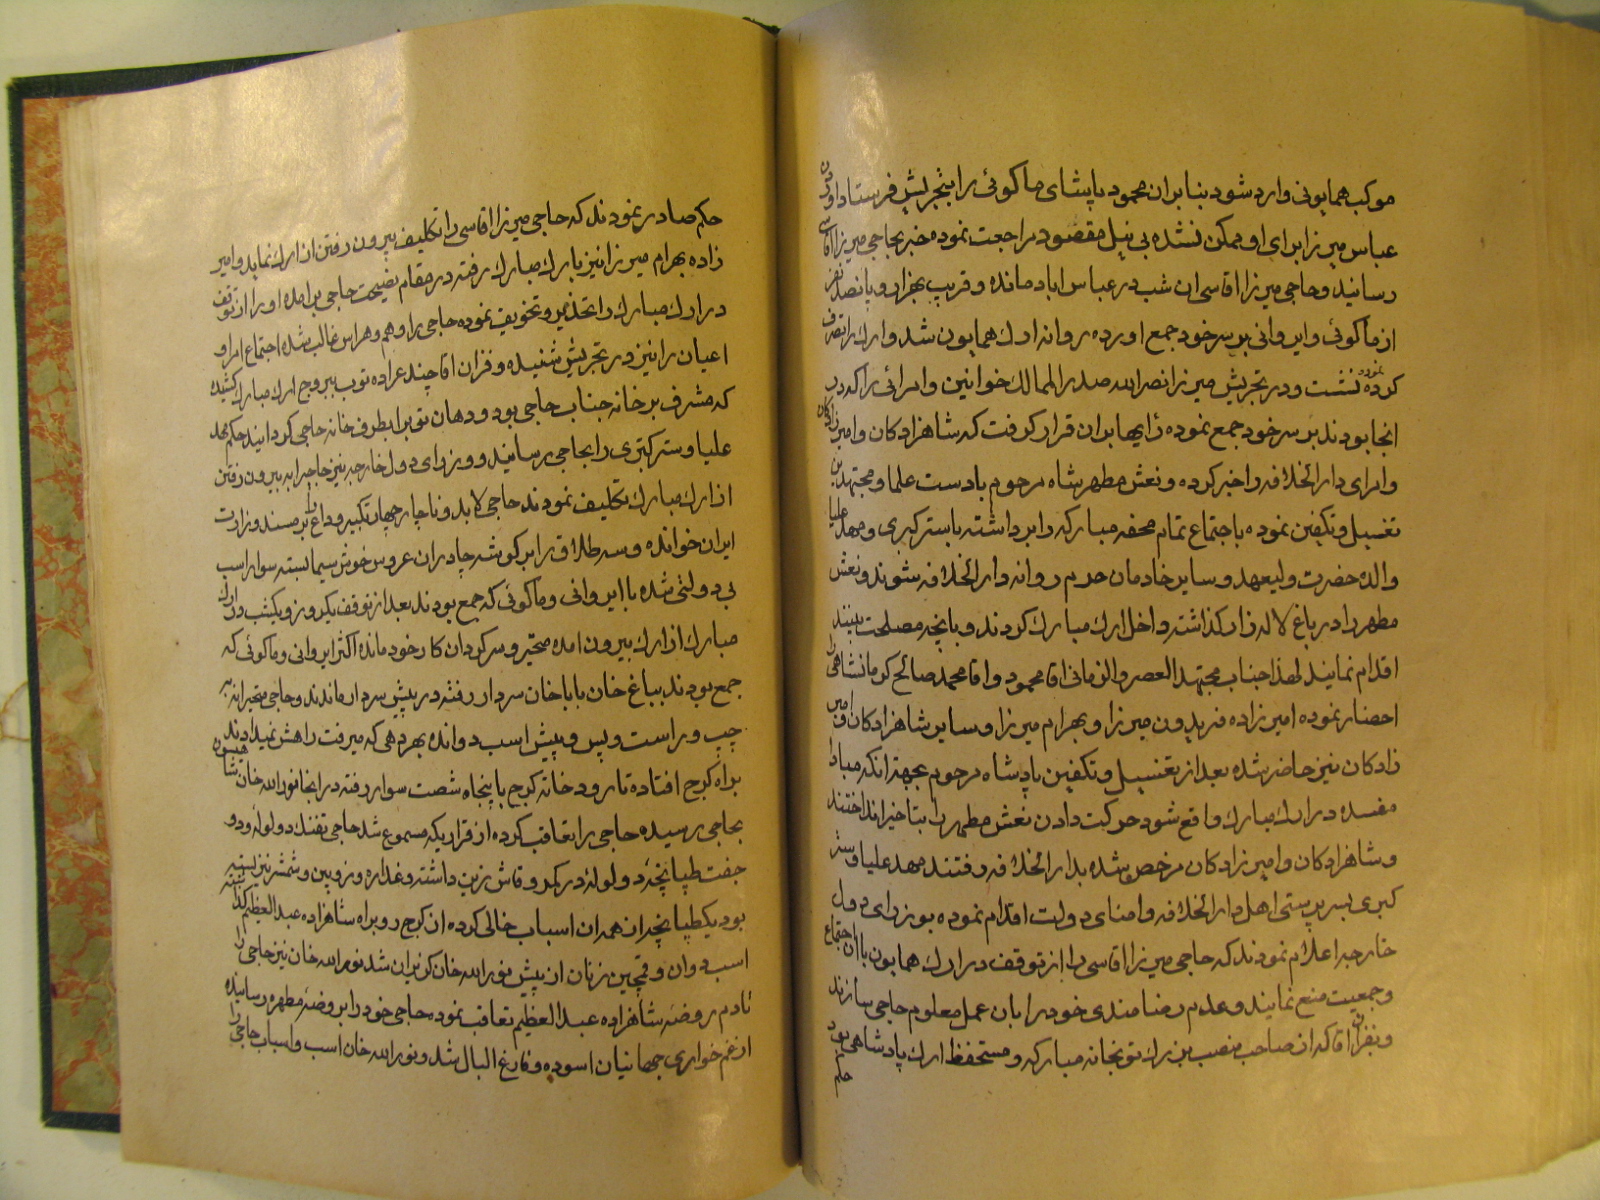 موکب همایونی وارد شود بنابران محمود پاپشای ماکوئی را بتجریش فرستاد اوردن
عباس میرزا برای او ممکن نشده بی نیل مقصود مراجعت نموده خبر بحاجی میرزا اقاسی
رسانید و حاجی میرزا اقاسی ان شب در عباس اباد مانده و قریب بهزار و پانصد نفر
از ماکوئی و ایروانی بر سر خود جمع اورده روانه ارک همایون شد و ارک را تصرف
کرده نشست و در تجریش میرزا نصرالله صدرالممالک خوانین و امرائی را که در
انجا بودند بر سر خود جمع نموده رایها بران قرار کرفت که شاهزادکان و امیرزادکان
و امرای دارالخلافه را خبر کرده و نعش مطهر شاه مرحوم بادست علما و مجتهدین
تغسیل و تکفین نموده باجتماع تمام محفه مبارکه را برداشته با ستر کبری و مهد علیا
والده حضرت ولیعهد و سایر خادمان حرم روانه دارالخلافه شوند و نعش
مطهر را در باغ لاله زار کذاشته داخل ارک مبارک کردند و بانچه مصلحت ببینند
اقدام نمایند لهذا جناب مجتهد العصر والزمانی اقا محمود و اقا محمد صالح کرمانشاهی را
احضار نموده امیرزاده فریدون میرزا و بهرام میرزا و سایر شاهزادکان و امیر
زادکان نیز حاضر شده بعد از تغسیل و تکفین پادشاه مرحوم بجهة انکه مبادا
مفسده در ارک مبارک واقع شود حرکت دادن نعش مطهر را بتاخیر انداختند
و شاهزادکان و امیرزادکان مرخص شده بدارالخلافه رفتند مهد علیا و ستر
کبری بسرپرستی اهل دارالخلافه و امنای دولت اقدام نموده بوزرای دول
خارجه اعلام نمودند که حاجی میرزا اقاسی را از توقف در ارک همایون با ان اجتماع
و جمعیت منع نمایند و عدم رضامندی خود را بان عمل معلوم حاجی سازند
اقا که از صاحب منصب بزرک توپخانه مبارکه و مستحفظ ارک پادشاهی بود
حکم
حکم صادر نمودند که حاجی میرزا اقاسی را تکلیف بیرون رفتن از ارک نماید و امیر
زاده بهرام میرزا نیز بارک مبارک رفته در مقام نصیحت حاجی برامده او را از توقف
در ارک مبارک را تحذیر و تخویف نموده حاجی را وهم و هراس غالب شده اجتماع امرا و
اعیان را نیز در تجریش شنیده و اقا چند عراده توپ ببروج ارک مبارک کشیده
که مشرف بر خانه جناب حاجی بود و دهان توپ را بطرف خانه حاجی کردانید حکم مهد
علیا و ستر کبری را بحاجی رسانید و وزرای دول خارجه نیز حاجی را به بیرون رفتن
از ارک مبارک تکلیف نمودند حاجی لابد و ناچار چهار تکبیر وداع را بر مسند وزارت
ایران خوانده و سه طلاق را بر کوشه چادر ان عروس خوش سیما بسته سوار اسب
بی دولتی شده با ایروانی و ماکوئی که جمع بودند بعد از توقف یکروز و یکشب در ارک
مبارک از ارک بیرون امده متحیر و سرکردان کار خود مانده اکثر ایروانی و ماکوئی که
جمع بودند بباغ خان باباخان سردار رفته در پیش سردار ماندند و حاجی متحیرانه بر
چپ و براست و پس و پیش اسب دوانده بهر دهی که میرفت راهش نمیدادند
براه کرج افتاده تا رودخانه کرج با پنجاه شصت سوار رفته در انجا نورالله خان شاهسون
بحاجی رسیده حاجی را تعاقب کرده از قراریکه مسموع شد حاجی تفنک دولوله و دو
جفت طپانچهٔ دولوله در کمر و قاش زین داشته و غداره و زوبین و شمشیر نیز بسته
بود یک طپانچه از همه ان اسباب خالی کرده از کرج رو براه شاهزاده عبدالعظیم کذاشته
اسب دوان و قمچین زنان از پیش نورالله خان کریزان شد نورالله خان نیز حاجی را
تا دم روضه شاهزاده عبدالعظیم تعاقب نموده حاجی خود را بروضهٔ مطهره رسانیده
از غم خواری جهانیان اسوده و فارغ البال شد و نورالله خان اسب و اسباب حاجی را